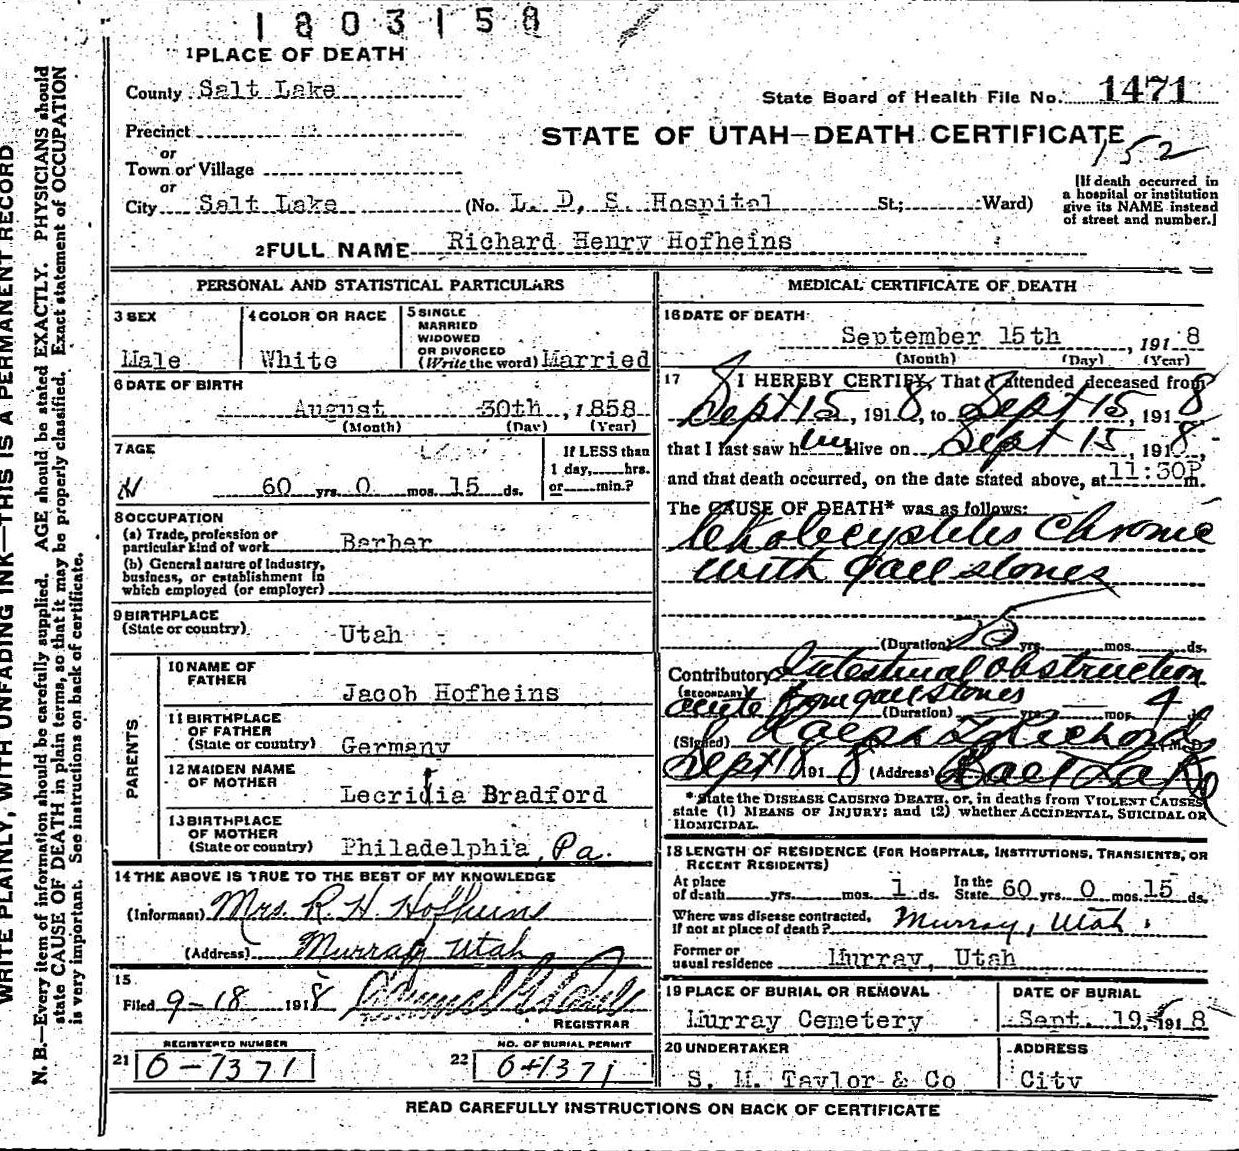 1803158
1 PLACE OF DEATH
County Salt Lake
State Board of Health File No. 1471
Precinct
STATE OF UTAH—DEATH CERTIFICATE
152
or
Town or Village
or
City Salt Lake (No. L. D, S. Hospital St.; Ward)
[If death occurred in
a hospital or institution
give its NAME instead
of street and number.]
2 FULL NAME Richard Henry Hofheins
PERSONAL AND STATISTICAL PARTICULARS
3 SEX
Male
4 COLOR OR RACE
White
5 SINGLE
MARRIED
WIDOWED
OR DIVORCED
(Write the word) Married
6 DATE OF BIRTH
August 30th, 1858
(Month) (Day) (Year)
7 AGE
60 yrs. 0 mos. 15 ds.
If LESS than
1 day, hrs.
or min.?
8 OCCUPATION
(a) Trade, profession or
particular kind of work Barber
(b) General nature of Industry,
business, or establishment in
which employed (or employer)
9 BIRTHPLACE
(State or country) Utah
PARENTS
10 NAME OF
FATHER Jacob Hofheins
11 BIRTHPLACE
OF FATHER
(State or country) Germany
12 MAIDEN NAME
OF MOTHER Lecridia Bradford
13 BIRTHPLACE
OF MOTHER
(State or country) Philadelphia, Pa.
14 THE ABOVE IS TRUE TO THE BEST OF MY KNOWLEDGE
(Informant) Mrs. R. H Hofheins
(Address) Murray Utah
15
Filed 9-18 1918
REGISTRAR
REGISTERED NUMBER
21 0-7371
NO. OF BURIAL PERMIT
22
MEDICAL CERTIFICATE OF DEATH
16 DATE OF DEATH
September 15th, 1918
(Month) (Day) (Year)
17 I HEREBY CERTIFY, That I attended deceased from
Sept 15, 1918, to Sept 15, 1918
that I last saw him alive on Sept 15, 1918,
and that death occurred, on the date stated above, at 11:30P m.
The CAUSE OF DEATH* was as follows:
Cholecystites Chronic
with gall stones
(Duration) yrs. mos. ds.
Contributory Intestinal Obstruction
(SECONDARY) acute from gall stones
(Duration) yrs. mos. 4
(Signed) Ralph T Richards, M.D.
Sept 18 1918 (Address) Salt Lake
* State the DISEASE CAUSING DEATH, or, in deaths from VIOLENT CAUSES,
state (1) MEANS OF INJURY; and (2) whether ACCIDENTAL, SUICIDAL OR
HOMICIDAL.
18 LENGTH OF RESIDENCE (FOR HOSPITALS, INSTITUTIONS, TRANSIENTS, OR
RECENT RESIDENTS)
At place
of death yrs. mos. 1 ds.
In the
State 60 yrs. 0 mos. 15 ds.
Where was disease contracted,
If not at place of death? Murray, Utah
Former or
usual residence Murray, Utah
19 PLACE OF BURIAL OR REMOVAL
Murray Cemetery
DATE OF BURIAL
Sept. 19, 1918
20 UNDERTAKER
S. M. Taylor & Co
ADDRESS
City
READ CAREFULLY INSTRUCTIONS ON BACK OF CERTIFICATE
WRITE PLAINLY, WITH UNFADING INK—THIS IS A PERMANENT RECORD
N. B.—Every item of information should be carefully supplied. AGE should be stated EXACTLY. PHYSICIANS should
state CAUSE OF DEATH in plain terms, so that it may be properly classified. Exact statement of OCCUPATION
is very important. See instructions on back of certificate.